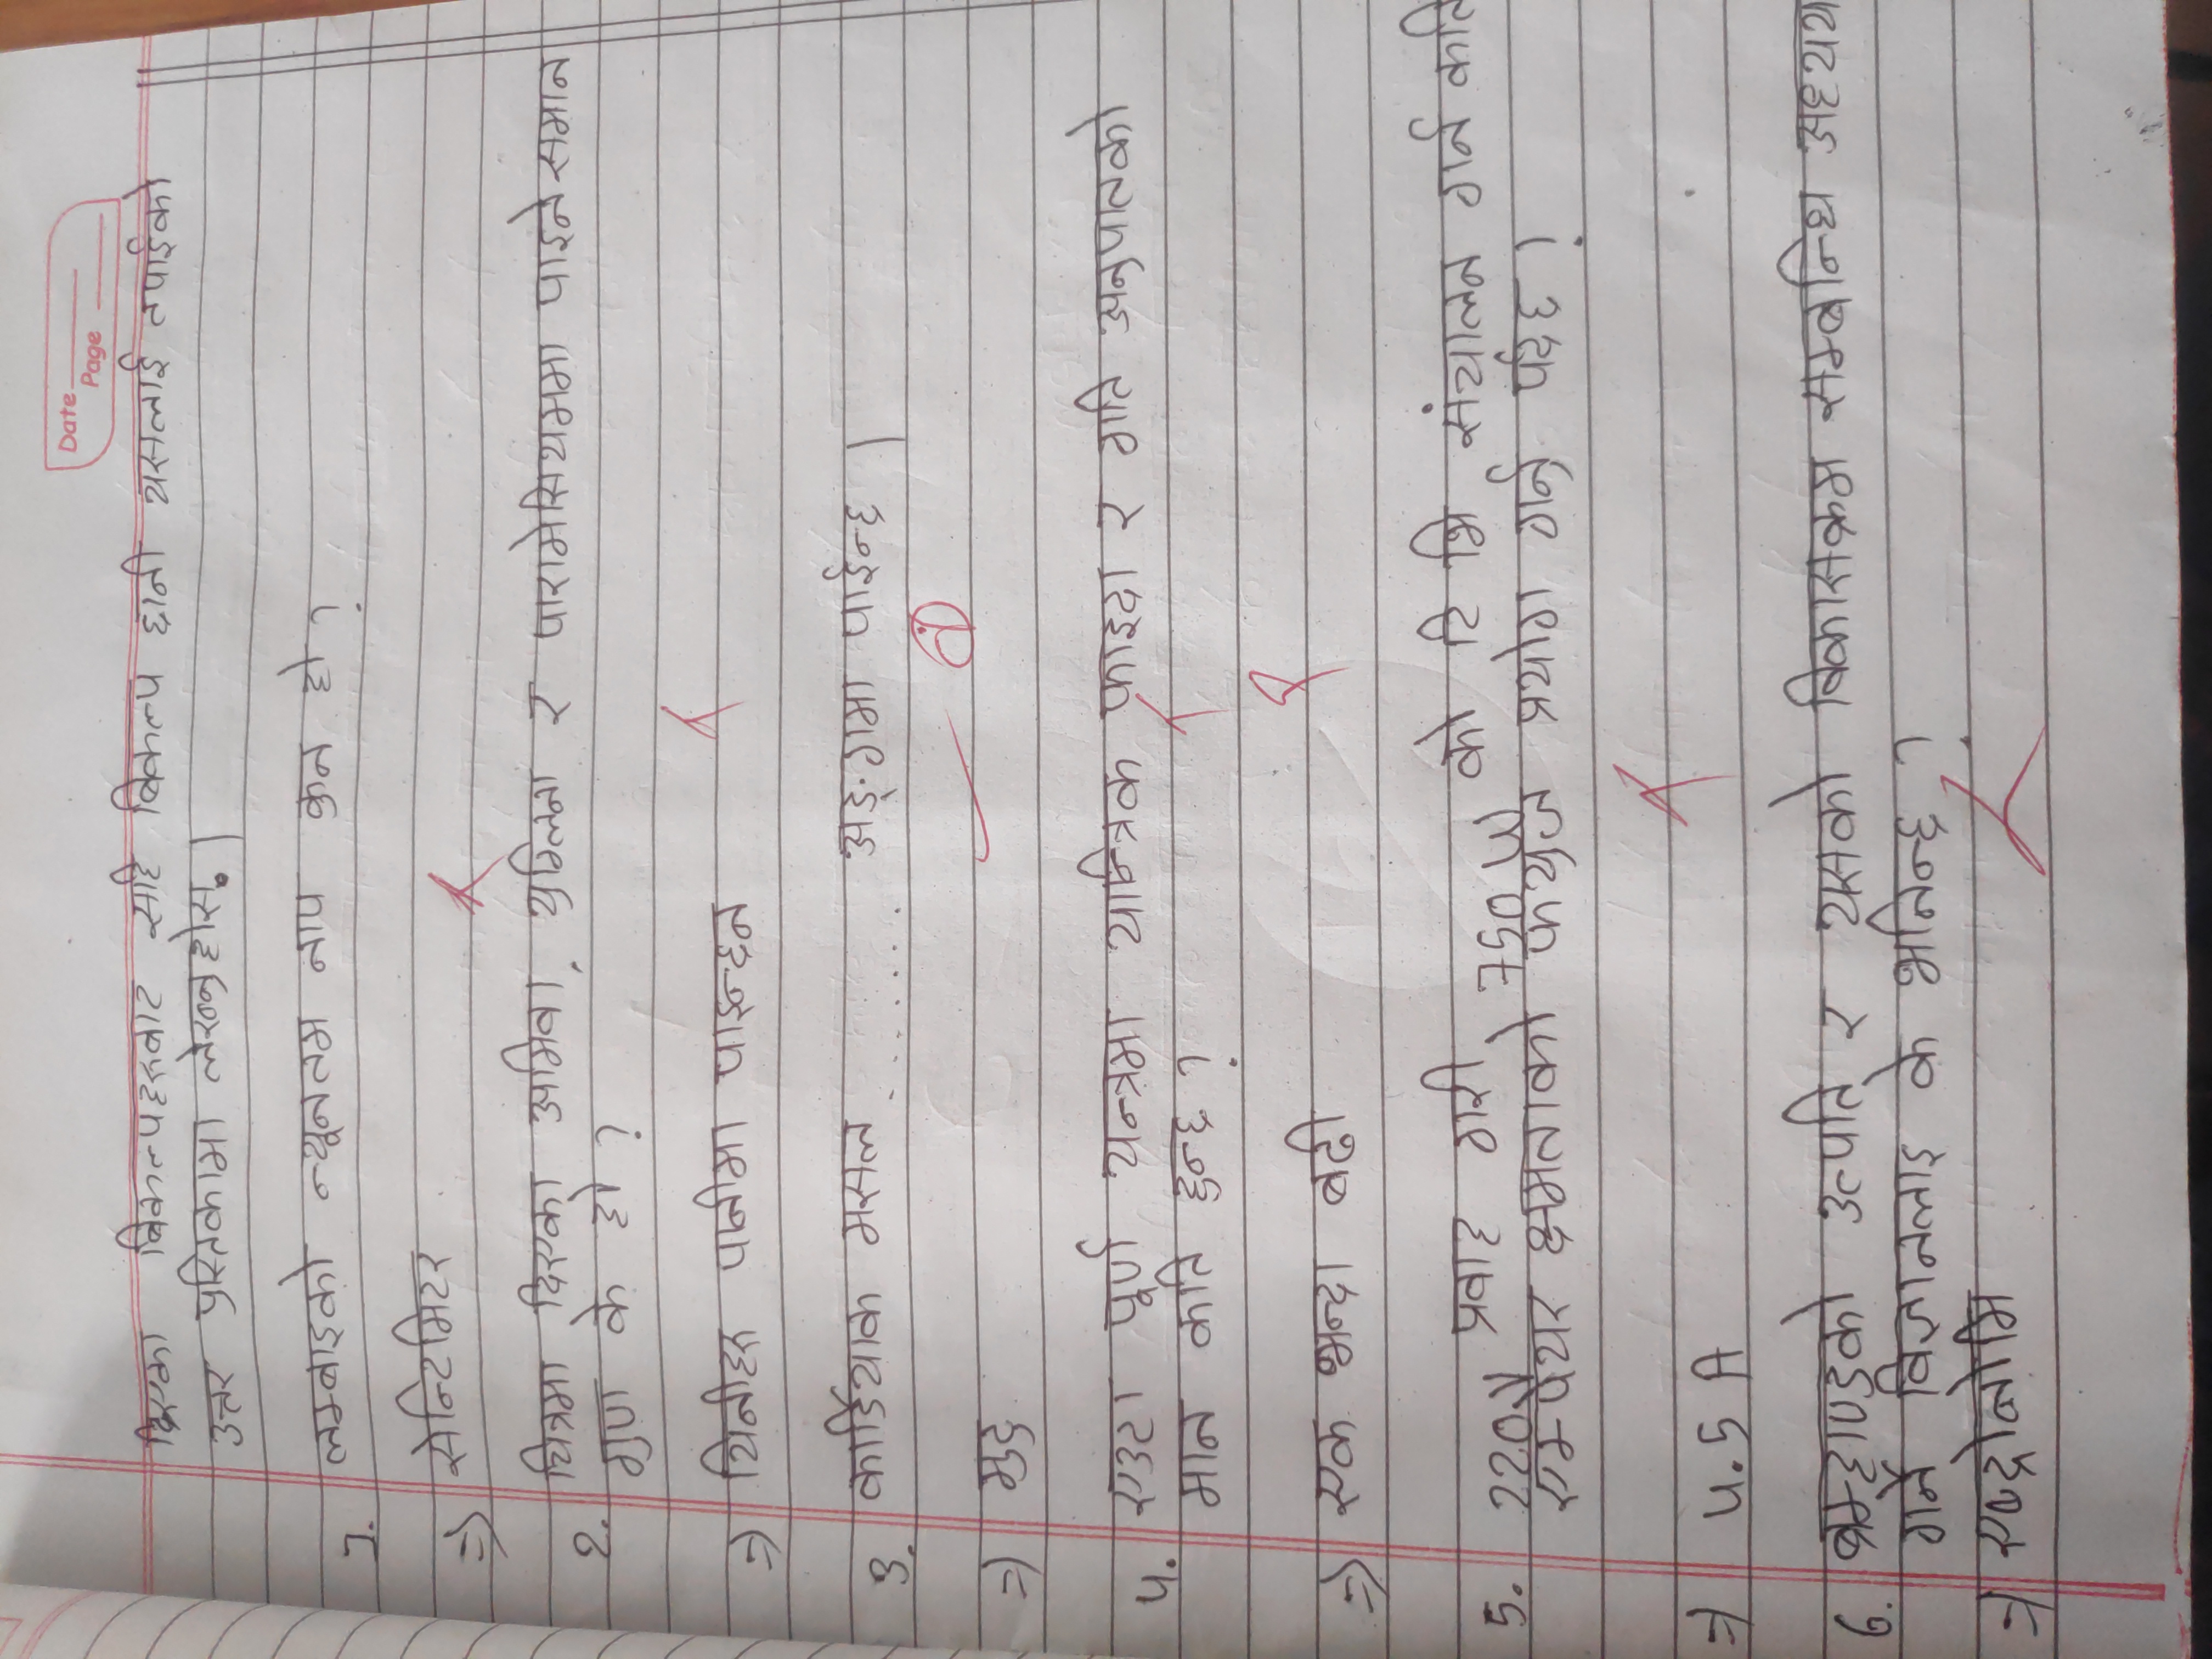 Date
Page
दिएका बिकल्पहरुबाट सहि बिकल्प छानी यसलाई तपाईको
उत्तर पुस्तिकामा लेख्नुहोस् ।
1. लम्बाइको न्यूनतम नाप कुन हो ?
=) सेन्टिमिटर
2. चित्रमा दिएका अमिवा, युग्लिना र पारामेसियममा पाइने समान
गुण के हो ?
=) यिनीहरु पानीमा पाइन्छन
3. कार्डियाक मसल ........ अङ्गमा पाईन्छ ।
=) मुटु
4. एउटा पूर्ण यन्त्रमा यान्त्रिक फाइदा र गति अनुपातको
मान कति हुन्छ ?
=) एक भन्दा बढी
5. 220V प्रवाह गरी 750 W को टि भि संचालन गर्न कति
एम्पियर क्षमताको फ्युज प्रयोग गर्नु पर्दछ ?
=) 4.5 A
6. ब्रम्हाण्डको उत्पति र यसको बिकासक्रम सम्बन्धि अध्यय
गर्ने विज्ञानलाइ के भनिन्छ ?
=)